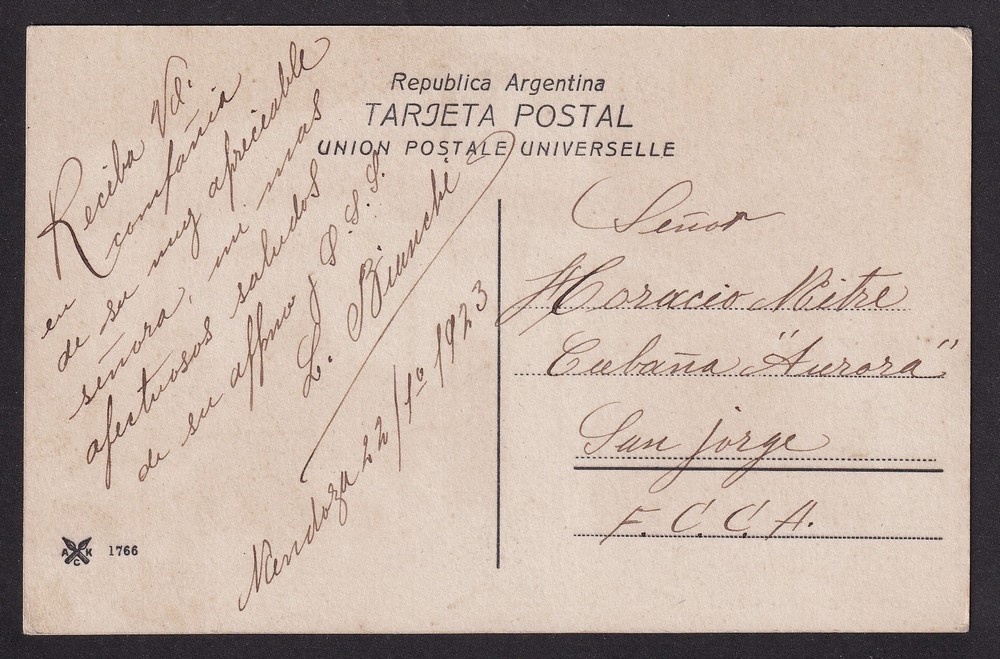 Republica Argentina
TARJETA POSTAL
UNION POSTALE UNIVERSELLE
Reciba Vd.
en compañia
de su muy apreciable
señora, mi mas
afectuosos saludos
de su affmo y S. S. S.
L. Bianchi
Mendoza 22/1º 1923
Señor
Horacio Mitre
Cabaña "Aurora"
San Jorge
F. C. C. A.
A K C 1766